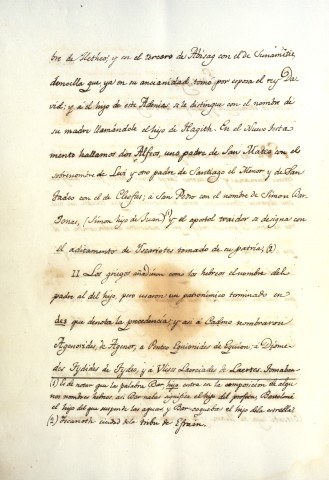 bre de Hetheo, y en el tercero de Abisag con el de Sunamitis,
doncella que ya en su ancianidad tomó por esposa el rey Da-
vid; y á el hijo de este Adonias, se le distingue con el nombre de
su madre llamándole el hijo de Hagith. En el Nuevo Testa-
mento hallamos dos Alfeos, uno padre de San Mateo con el
sobrenombre de Leví y otro padre de Santiago el Menor y de San
Tadeo con el de Cleofas; á San Pedro con el nombre de Simon Bar
Jonas, (Simon hijo de Juan)(1) y el apostol traidor se designa con
el aditamento de Iscariotes tomado de su patria; (2)
II Los griegos añadieron como los hebreos el nombre del
padre al del hijo, pero usaron un patronímico terminado en
des que denota la procedencia; y asi á Cadmo nombraron
Agenorides, de Agenor, a Penteo Equionides de Equion, a Diome-
des Tydides de Tydeo, y á Ulises Laerciades de Laertes. Tomaban
(1) Es de notar que las palabra Bar, hijo entra en la composicion de algu-
nos nombres hebreos, asi Bar-nabas significa el hijo del profeta, Bartolomé
el hijo del que suspende las aguas y Bar-coquebas el hijo de la estrella
(2) Iscarioth ciudad de la tribu de Efraín.